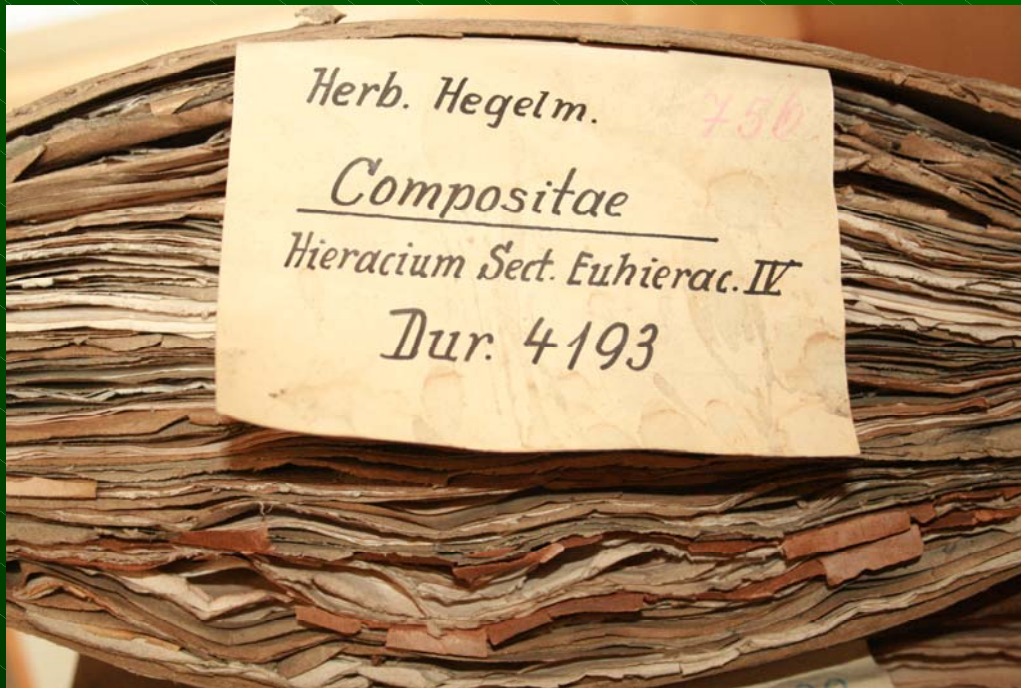 Herb. Hegelm.
756
Compositae
Hieracium Sect. Euhierac. IV
Dur. 4193